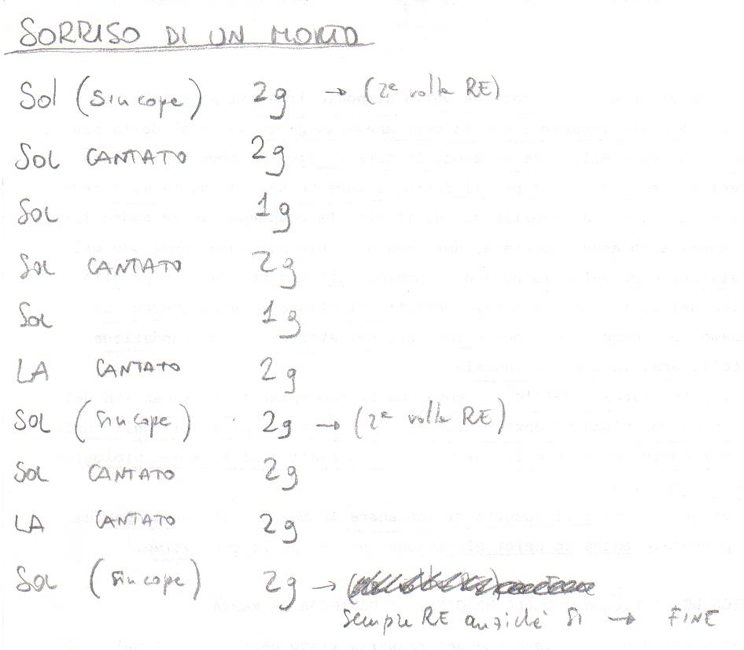 SORRISO DI UN MORTO
Sol (sincope) 2g → (2ª volta RE)
SOL CANTATO 2g
SOL 1g
SOL CANTATO 2g
SOL 1g
LA CANTATO 2g
SOL (sincope) 2g → (2ª volta RE)
SOL CANTATO 2g
LA CANTATO 2g
SOL (sincope) 2g →
sempre RE anziché SI → FINE